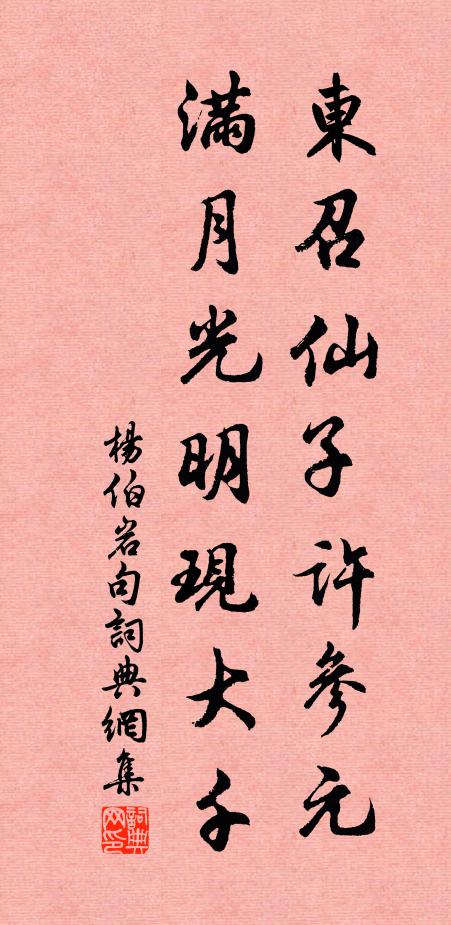 東召仙子許參元
滿月光明現大千
楊伯岩句詞典網集
詞典网印